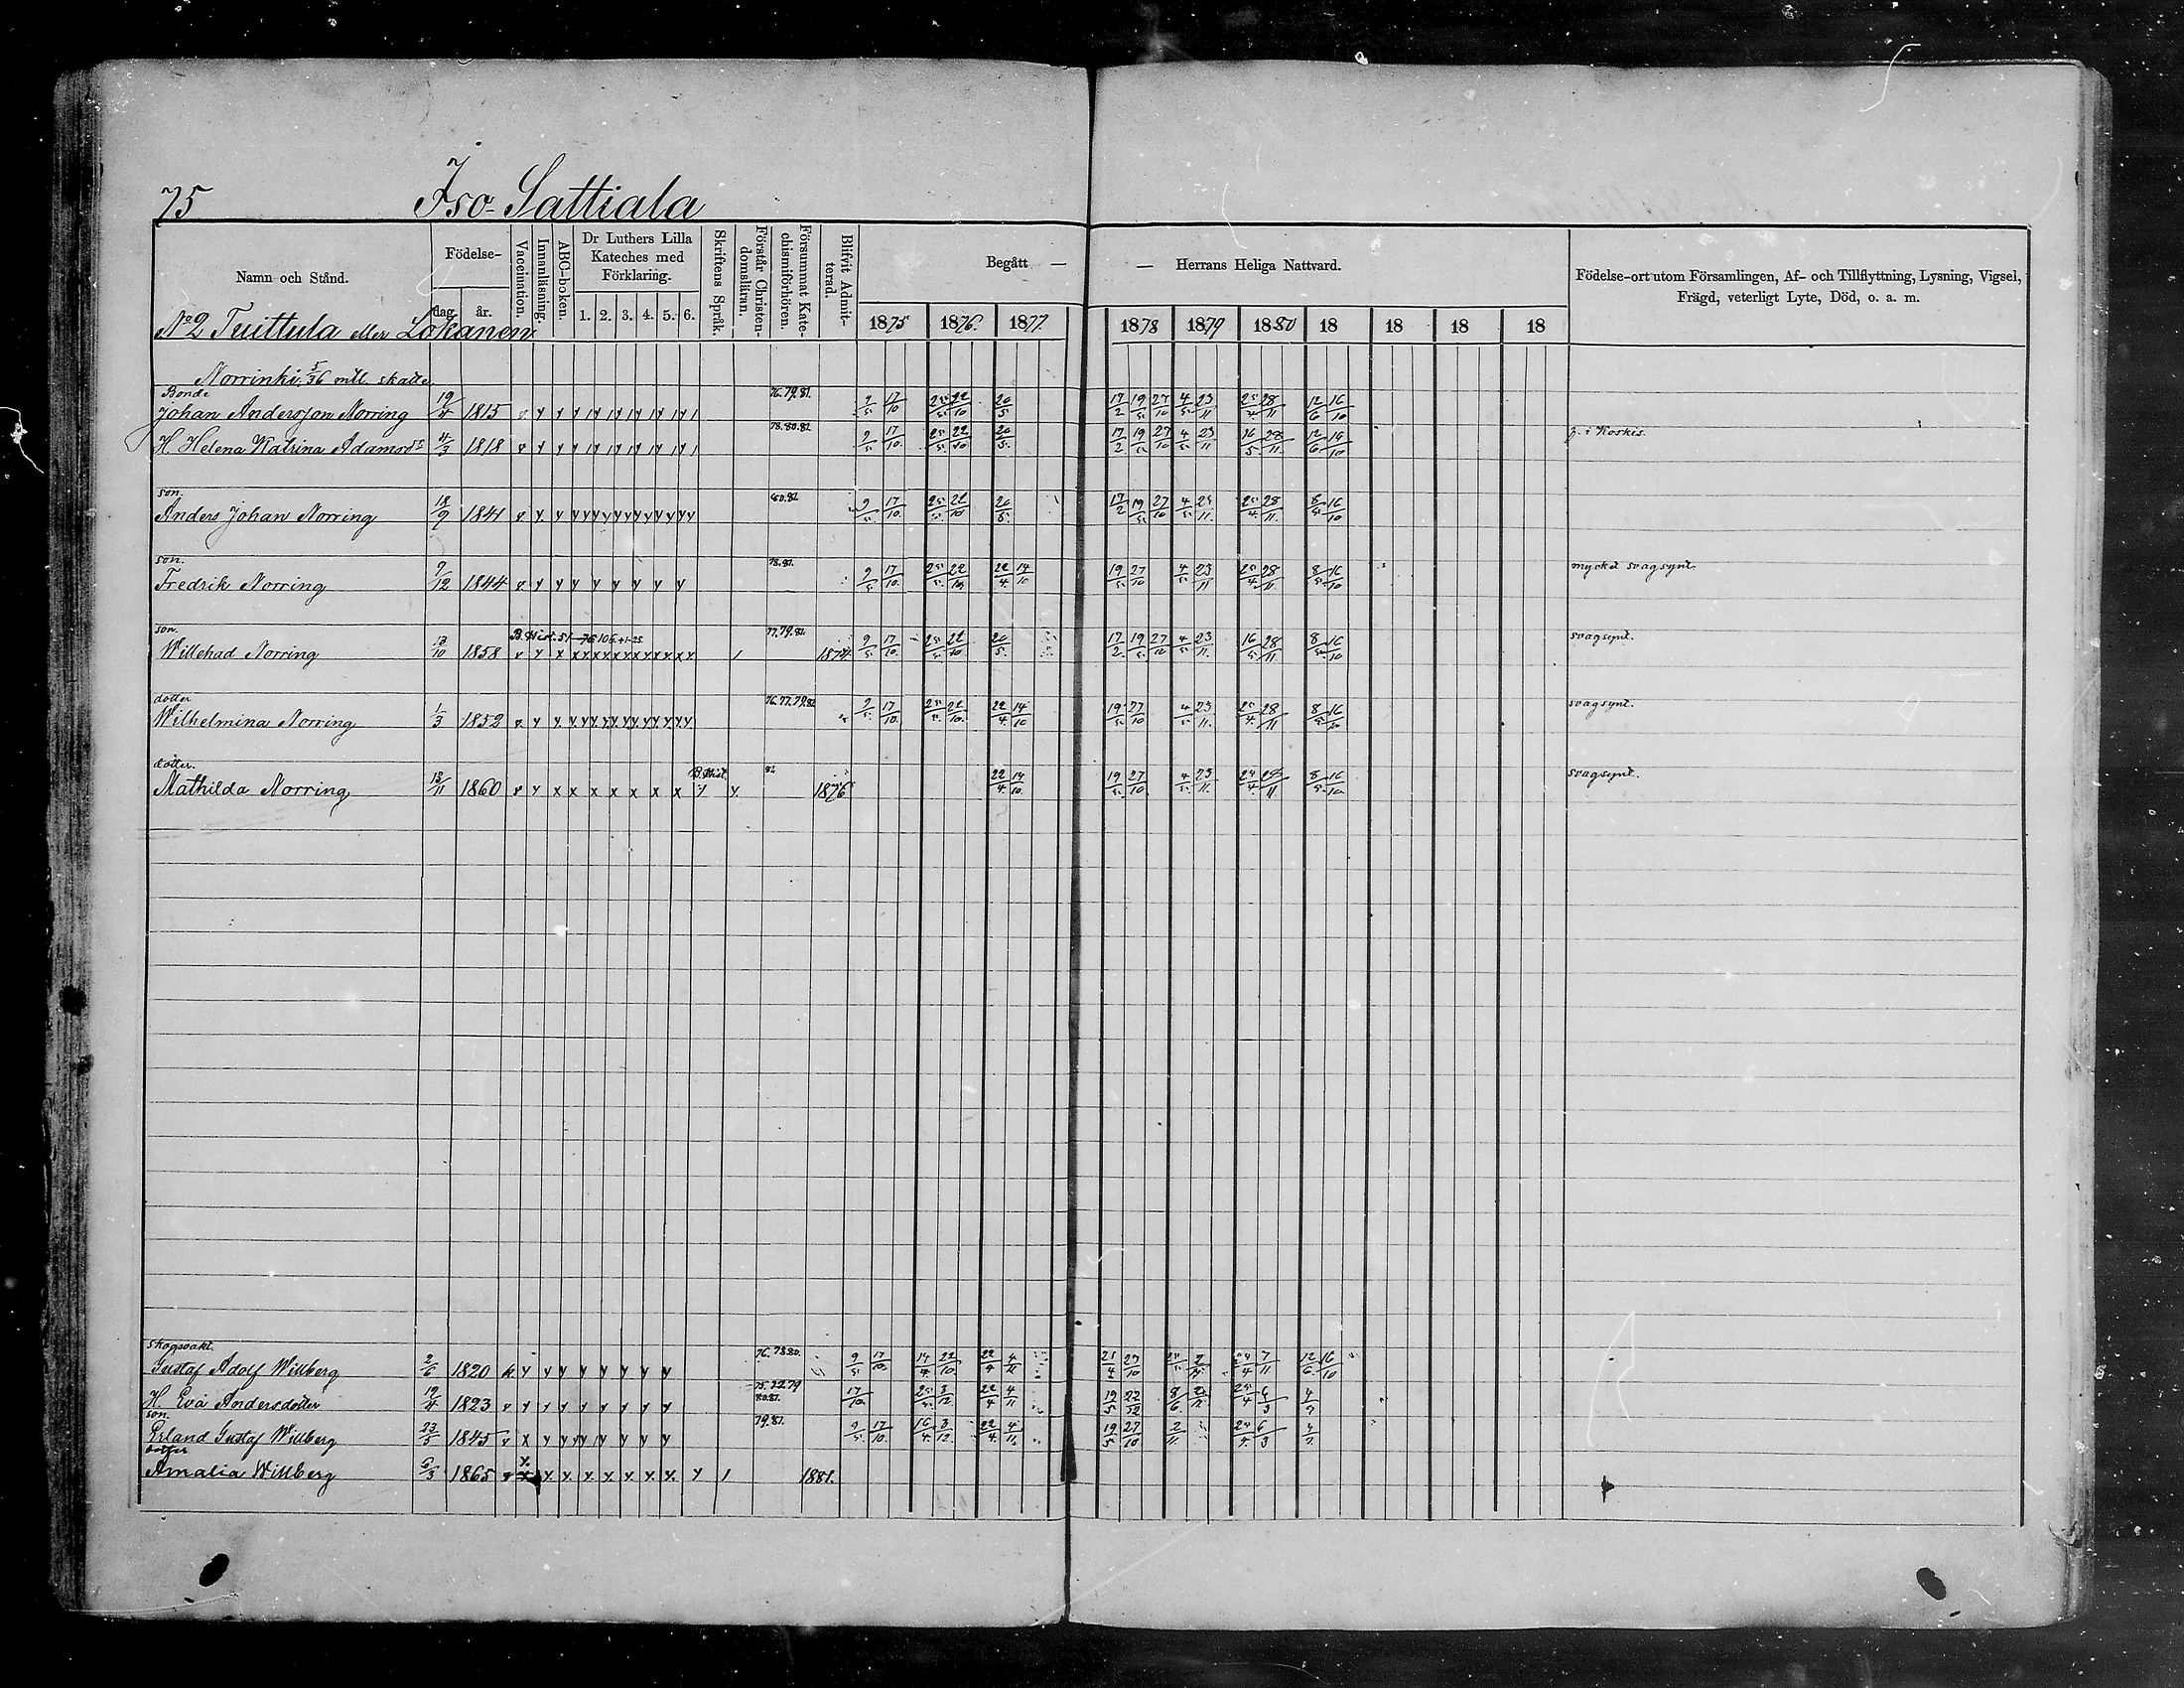 75 Iso-Sattiala
Namn och Stånd. Födelse- dag. år. Vaccination. Innanläsning. ABC-boken. Dr Luthers Lilla Kateches med Förklaring. 1. 2. 3. 4. 5. 6. Skriftens Språk. Förstår Christendomsläran. Försummat Katechismiförhören. Blifvit Admitterad. Begått — — Herrans Heliga Nattvard. Födelse-ort utom Församlingen, Af- och Tillflyttning, Lysning, Vigsel, Frägd, veterligt Lyte, Död, o. a. m.
1875 1876. 1877. 1878 1879 1880 18 18 18 18
No 2 Tuittula eller Lokanen
Norrinki, 5/36 mtl. skatte.
Bonde 76.79.81.
Johan Andersson Norring 19/4 1815 9/5 17/10 25/5 22/10 20/5 17/2 19/5 27/10 4/5 23/11 25/4 28/11 12/6 16/10
78.80.81.
H. Helena Katrina Adamsdr 4/3 1818 9/5 17/10 25/5 22/10 20/5 17/2 19/5 27/10 4/5 23/11 16/5 28/11 12/6 16/10 f. i Koskis.
son. 80.81.
Anders Johan Norring 18/9 1841 9/5 17/10 25/5 22/10 20/5 17/2 19/5 27/10 4/5 23/11 25/4 28/11 8/5 16/10
son. 78.81.
Fredrik Norring 7/12 1844 9/5 17/10 25/5 22/10 22/4 14/10 19/5 27/10 4/5 23/11 25/4 28/11 8/5 16/10 mycket svagsynt.
son. B. Hist. 77.79.81.
Willehad Norring 13/10 1858 1874 9/5 17/10 25/5 22/10 20/5 17/2 19/5 27/10 4/5 23/11 16/5 28/11 8/5 16/10 svagsynt.
dotter 76.77.79.81
Wilhelmina Norring 1/3 1852 9/5 17/10 25/5 22/10 22/4 14/10 19/5 27/10 4/5 23/11 25/4 28/11 8/5 16/10 svagsynt.
dotter. B. Hist.
Mathilda Norring 13/11 1860 1876 22/4 14/10 19/5 27/10 4/5 23/11 8/5 16/10 svagsynt.
skogsvakt. 76.78.80.
Gustaf Adolf Willberg 2/6 1820 9/5 17/10 22/10 22/4 4/11 27/10 7/11 12/6 16/10
H. Eva Andersdotter 19/4 1823 17/10 25/5 3/12 22/4 4/11 19/5 25/4 4/7
son. 79.81.
Erland Gustaf Willberg 23/5 1845 9/5 17/10 16/4 3/12 22/4 4/11 19/5 27/10 2/11 6/3 4/7
dotter
Amalia Willberg 6/3 1865 1881.